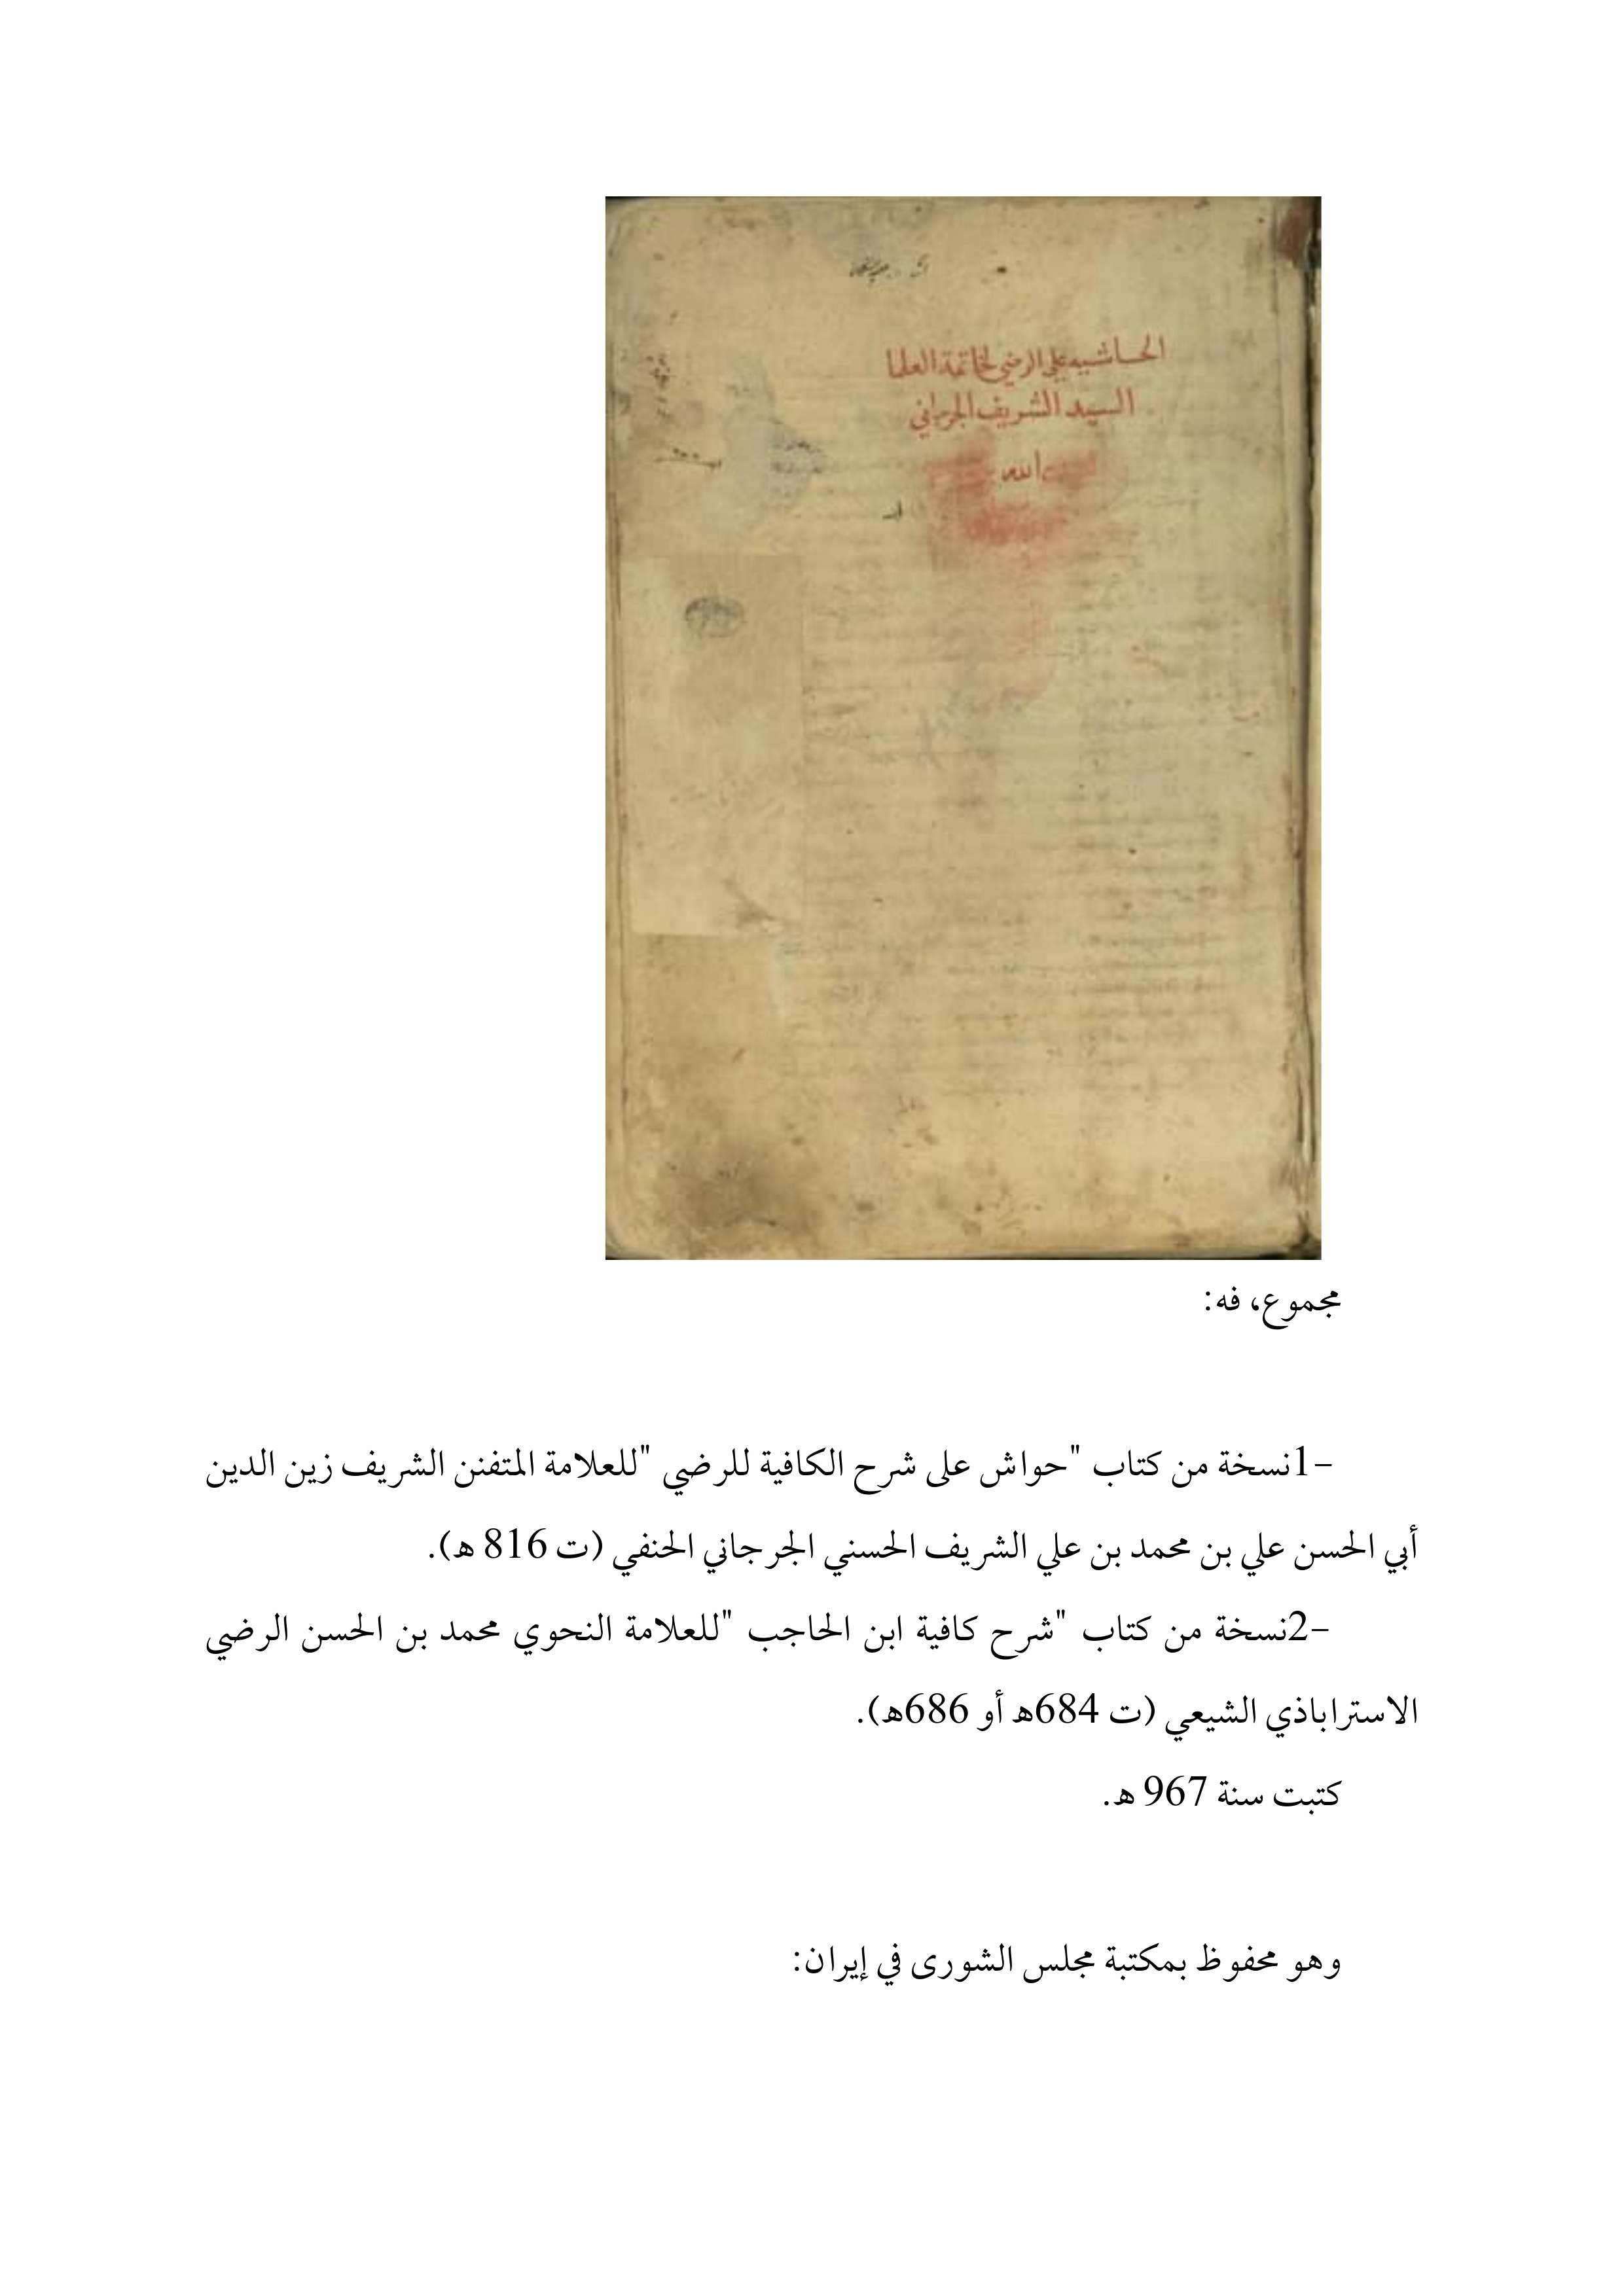 الحاشيه على الرضي لخاتمة العلما
السيد الشريف الجرجاني
الله
مجموع، فه:
-1نسخة من كتاب "حواش على شرح الكافية للرضي "للعلامة المتفنن الشريف زين الدين
أبي الحسن علي بن محمد بن علي الشريف الحسني الجرجاني الحنفي (ت 816 ه).
-2نسخة من كتاب "شرح كافية ابن الحاجب "للعلامة النحوي محمد بن الحسن الرضي
الاستراباذي الشيعي (ت 684ه أو 686ه).
كتبت سنة 967 ه.
وهو محفوظ بمكتبة مجلس الشورى في إيران: